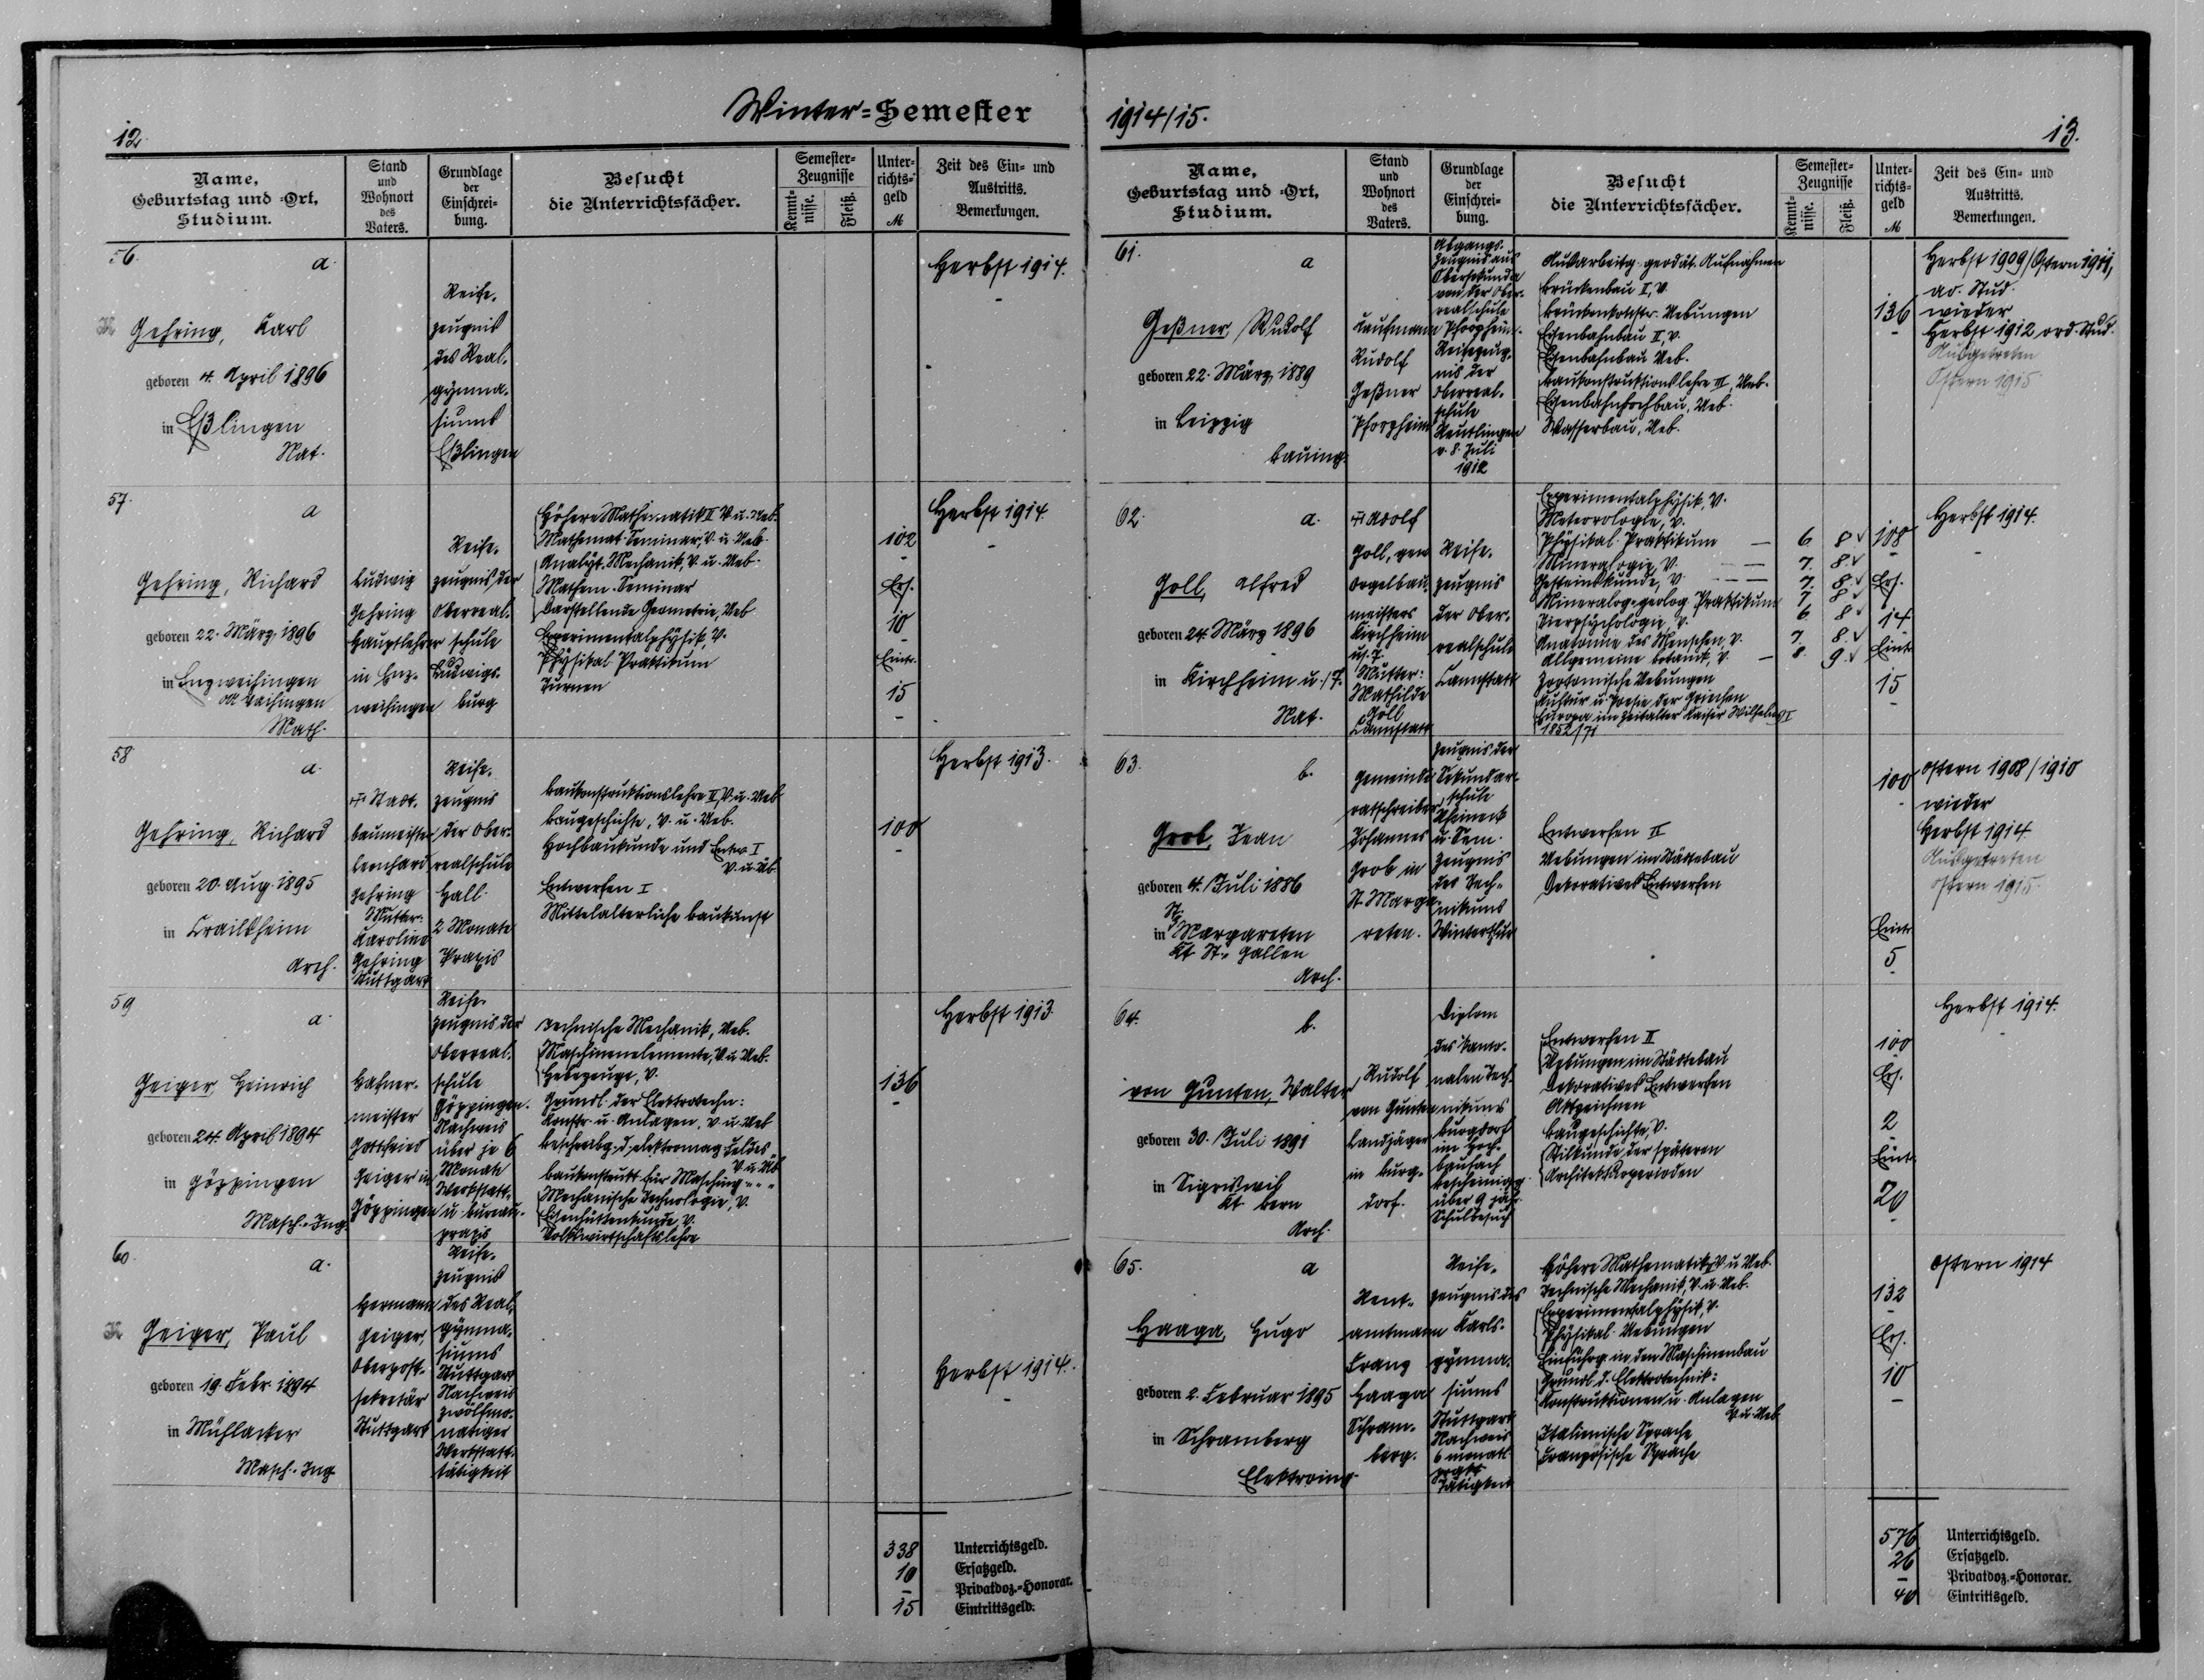 12.
Winter=Semester
Name,
Geburtstag und =Ort,
Studium.
Stand
und
Wohnort
des
Vaters.
Grundlage
der
Einschrei=
bung.
Besucht
die Unterrichtsfächer.
Semester=
Zeugnisse
Kennt-
nisse.
Fleiß.
Unter=
richts=
geld
M
Zeit des Ein= und
Austritts.
Bemerkungen.
56.
a.
Gehring, Karl
geboren 4. April 1896
in Eßlingen
Nat.
Reife-
zeugnis
des Real-
gymna-
siums
Eßlingen
Herbst 1914.
57.
a
Gehring, Richard
geboren 22. März 1896
in Enzweihingen
OA Vaihingen
Math.
Ludwig
Gehring
Hauptlehrer
in Enz-
weihingen
Reife-
zeugnis der
Oberreal-
schule
Ludwigs-
burg
Höhere Mathematik II V. u. Ueb.
Mathemat. Seminar, V. u. Ueb.
Analyt. Mechanik, V. u. Ueb.
Mathem. Seminar
Darstellende Geometrie, Ueb.
Experimentalphysik, V.
Physikal. Praktikum
Turnen
102
Ers.
10
Eintr.
15
Herbst 1914.
58
a.
Gehring, Richard
geboren 20. Aug. 1895
in Crailsheim
Arch.
Stadt-
baumeister
Leonhard
Gehring
Mutter:
Karoline
Gehring
Stuttgart
Reife-
zeugnis
der Ober-
realschule
Hall.
2 Monate
Praxis
Baukonstruktionslehre II, V. u. Ueb.
Baugeschichte, V. u. Ueb.
Hochbaukunde und Entw. I
V. u. Üb.
Entwerfen I
Mittelalterliche Baukunst
100
Herbst 1913.
59
a.
Geiger, Heinrich
geboren 24. April 1894
in Göppingen
Masch.-Ing.
Hafner-
meister
Gottfried
Geiger in
Göppingen
Reife-
zeugnis der
Oberreal-
schule
Göppingen.
Nachweis
über je 6
Monate
Werkstatt-
u. Bureau-
praxis
Technische Mechanik, Ueb.
Maschinenelemente, V. u. Ueb.
Hebezeuge, V.
Grundl. der Elektrotechn.:
Konstr. u. Anlagen, V. u. Ueb.
Beschreibg. d. elektromag. Feldes
V. u. Üb.
Baukonstrukt. für Masching.
Mechanische Technologie, V.
Eisenhüttenkunde, V.
Volkswirtschaftslehre
136
Herbst 1913
60.
a.
Geiger, Paul
geboren 19. Febr. 1894
in Mühlacker
Masch.-Ing.
Hermann
Geiger,
Oberpost-
sekretär
Stuttgart
Reife-
zeugnis
des Real-
gymna-
siums
Stuttgart
Nachweis
zwölfmo-
natiger
Werkstatt-
tätigkeit
Herbst 1914.
338 Unterrichtsgeld.
10 Ersatzgeld.
– Privatdoz.=Honorar.
15 Eintrittsgeld.
1914/15.
13.
Name,
Geburtstag und =Ort,
Studium.
Stand
und
Wohnort
des
Vaters.
Grundlage
der
Einschrei=
bung.
Besucht
die Unterrichtsfächer.
Semester=
Zeugnisse
Kennt-
nisse.
Fleiß.
Unter=
richts=
geld
M
Zeit des Ein= und
Austritts.
Bemerkungen.
61.
a
Geßner, Rudolf
geboren 22. März 1889
in Leipzig
Bauing.
Kaufmann
Rudolf
Geßner
Pforzheim
Abgangs-
zeugnis aus
Obersekunda
von der Ober-
realschule
Pforzheim.
Reifezeug-
nis der
Oberreal-
schule
Reutlingen
v. 8. Juli
1912
Ausarbeitg. geodät. Aufnahmen
Brückenbau II, V.
Brückenkonstr. Uebungen
Eisenbahnbau II, V.
Eisenbahnbau Ueb.
Baukonstruktionslehre III, Ueb.
Eisenbahnhochbau, Ueb.
Wasserbau, Ueb.
136
Herbst 1909/Ostern 1911,
ao. Stud.
wieder
Herbst 1912 ord. Stud.
Ausgetreten
Ostern 1915
62.
a.
Goll, Alfred
geboren 24. März 1896
in Kirchheim u./T.
Nat.
Adolf
Goll, gew.
Orgelbau-
meisters
Kirchheim
u. T.
Mutter:
Mathilde
Goll
Cannstatt
Reife-
zeugnis
der Ober-
realschule
Cannstatt
Experimentalphysik, V.
Meteorologie, V.
Physikal. Praktikum — 6 8
Mineralogie, V. — 7. 8.
Gesteinskunde, V. — 7. 8.
Mineralog.-geolog. Praktikum 7 8
Tierpsychologie, V. 6 8
Anatomie des Menschen, V. 7. 8.
Allgemeine Botanik, V. — 8. 9.
Zootomische Uebungen
Kultur u. Poesie der Griechen
Europa im Zeitalter Kaiser Wilhelms I
1852/71
108
Ers.
14
Eintr.
15
Herbst 1914.
63.
b.
Grob, Jean
geboren 4. Juli 1886
in St. Margareten
Kt. St. Gallen
Arch.
Gemeinde-
ratschreiber
Johannes
Grob in
St. Marga-
reten.
Zeugnis der
Sekundar-
schule
Rheineck
u. Sem.
Zeugnis
des Tech-
nikums
Winterthur
Entwerfen II
Uebungen im Städtebau
Dekoratives Entwerfen
100
Eintr.
5
Ostern 1908/1910
wieder
Herbst 1914
Ausgetreten
Ostern 1915.
64.
b.
von Gunten, Walter
geboren 30. Juli 1891
in Sigriswil
Kt. Bern
Arch.
Rudolf
von Gunten
Landjäger
in Burg-
dorf.
Diplom
des Kanto-
nalen Tech-
nikums
Burgdorf
im Hoch-
baufach
Bescheinigg.
über 9 jäh.
Schulbesuch
Entwerfen II
Uebungen im Städtebau
Dekoratives Entwerfen
Aktzeichnen
Baugeschichte, V.
Stilkunde der späteren
Architekturperioden
100
Ers.
2
Eintr.
20
Herbst 1914.
65.
a
Haaga, Hugo
geboren 2. Februar 1895
in Schramberg
Elektroing.
Rent-
amtmann
Franz
Haaga
Schram-
berg.
Reife-
zeugnis des
Karls-
gymna-
siums
Stuttgart
Nachweis
6 monatl.
prakt.
Tätigkeit
Höhere Mathematik V. u. Ueb.
Technische Mechanik, V. u. Ueb.
Experimentalphysik, V.
Physikal. Uebungen
Einführg. in den Maschinenbau
Grundl. d. Elektrotechnik:
Konstruktionen u. Anlagen
V. u. Ueb.
Italienische Sprache
Französische Sprache
132
Ers.
10
Ostern 1914
576 Unterrichtsgeld.
26 Ersatzgeld.
– Privatdoz.=Honorar.
40 Eintrittsgeld.